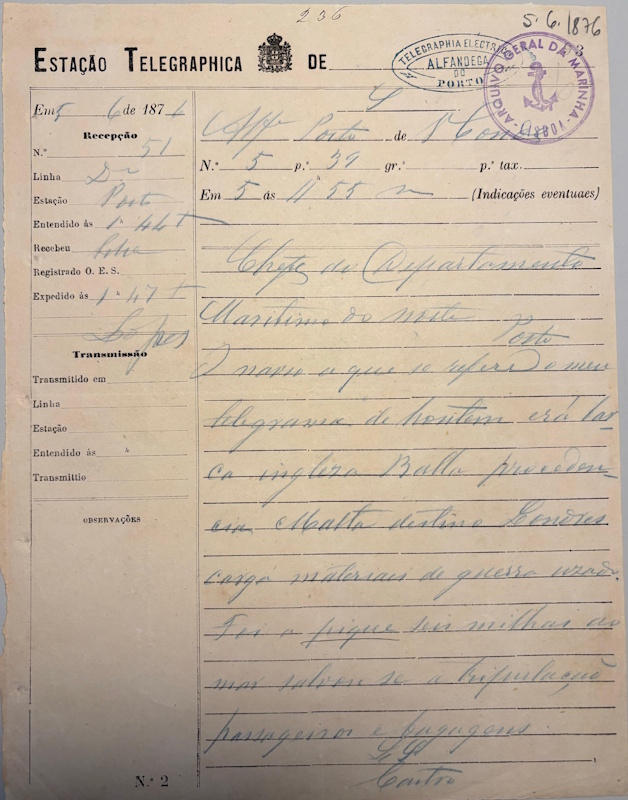 236
5. 6. 1876
ESTAÇÃO TELEGRAPHICA DE
TELEGRAPHIA ELECTRICA
ALFANDEGA
DO
PORTO
ARQUIVO GERAL DA MARINHA
LISBOA
Em 5 6 de 1876
Recepção
N.º 51
Linha
Estação Porto
Entendido ás 1 h 44 T
Recebeu
Registrado O. E. S.
Expedido ás 1 h 47 T
Lopes
Transmissão
Transmitido em
Linha
Estação
Entendido ás h
Transmittio
OBSERVAÇÕES
N.º 2
S
Porto de
N.º 5 p.ª 39 gr.ª p.ª tax.
Em 5 ás 11 h 55 m (Indicações eventuaes)
Chefe do Departamento
Maritimo do norte
Porto
O navio a que se refere o meu
telegramma de hontem erá bar-
ca ingleza Balla proceden-
cia Malta destino Londres
carga materiais de guerra uzado.
Foi a pique seis milhas ao
mar salvou se a tripulação
passageiros e bagagens.
Castro